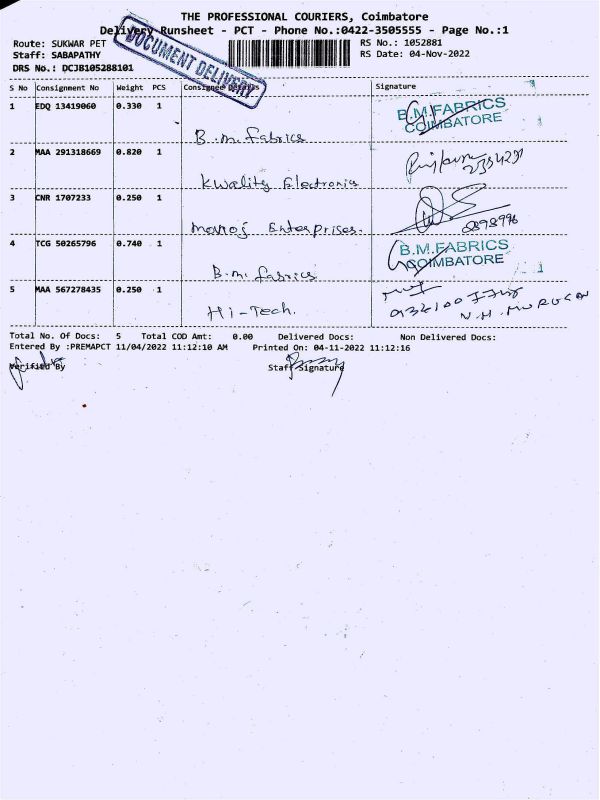 THE PROFESSIONAL COURIERS, Coimbatore
Delivery Runsheet - PCT - Phone No.:0422-3505555 - Page No.:1
Route: SUKWAR PET
Staff: SABAPATHY
DRS No.: DCJB105288101
DOCUMENT DELIVERY
RS No.: 1052881
RS Date: 04-Nov-2022
S No Consignment No Weight PCS Consignee Details Signature
1 EDQ 13419060 0.330 1 B.M. Fabrics B.M.FABRICS COIMBATORE
2 MAA 291318669 0.820 1 Kwality Electronics
3 CNR 1707233 0.250 1 Manoj Enterprises. 8898996
4 TCG 50265796 0.740 1 B.M. Fabrics B.M.FABRICS COIMBATORE
5 MAA 567278435 0.250 1 Hi-Tech. N.H. MURUGAN
Total No. Of Docs: 5 Total COD Amt: 0.00 Delivered Docs: Non Delivered Docs:
Entered By :PREMAPCT 11/04/2022 11:12:10 AM Printed On: 04-11-2022 11:12:16
Verified By Staff Signature